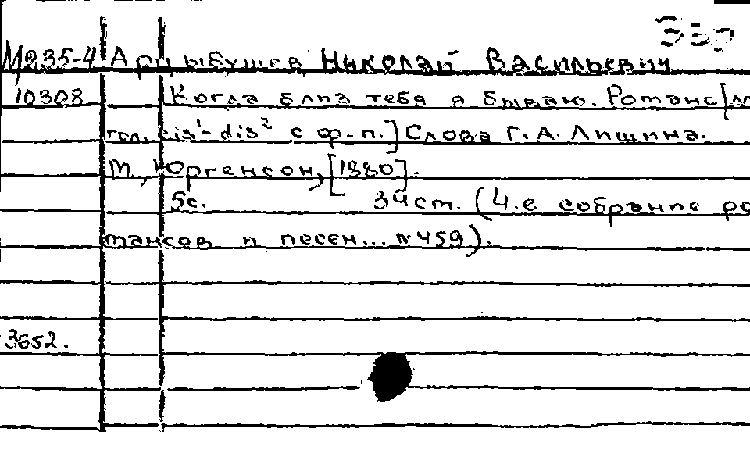 М235-4 Арцыбушев Николай Васильевич
10308 Когда близ тебя я бываю. Романс [дл
гол. cis¹-dis² с ф-п.] Слова Г. А. Лишина.
М., Юргенсон, [1880].
5с. 34 ст. (4.е собрание ро
мансов и песен... №459).
3652.